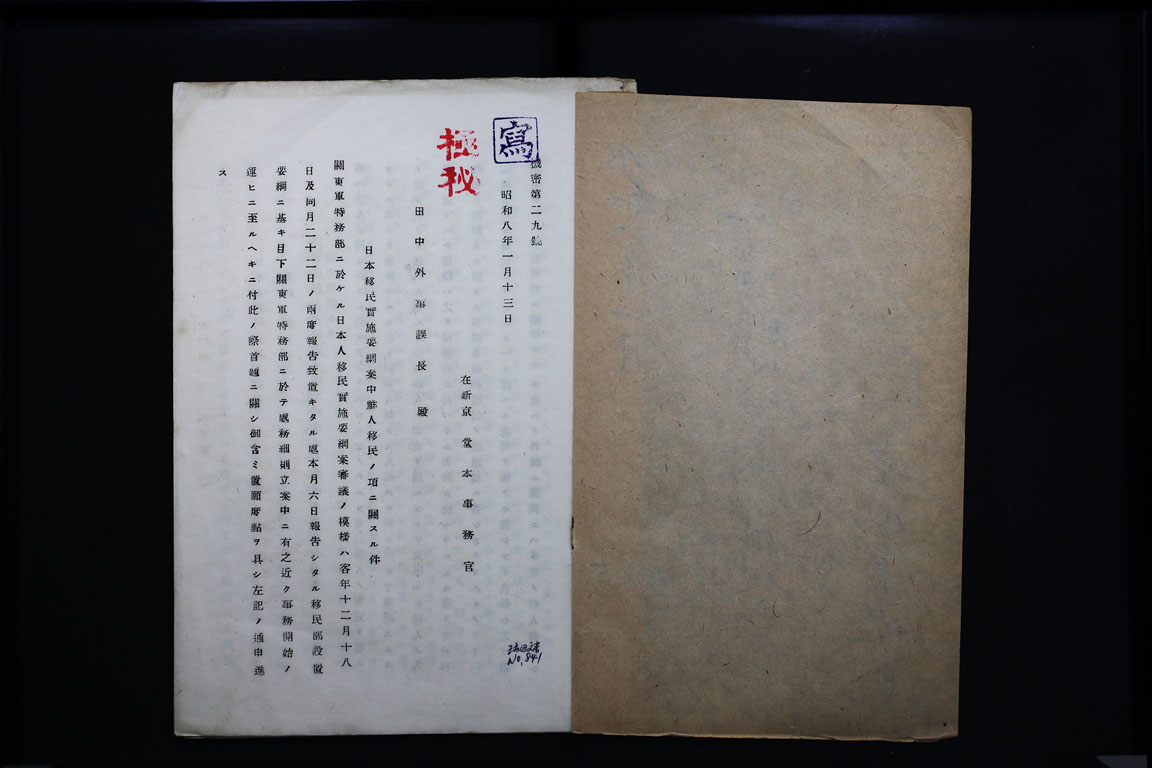 寫
機密第二九號
昭和八年一月十三日
極秘
在新京 堂本事務官
田中外事課長殿
日本移民實施要綱案中鮮人移民ノ項ニ關スル件
關東軍特務部ニ於ケル日本人移民實施要綱案審議ノ模樣ハ客年十二月十八
日及同月二十二日ノ兩度報告致置キタル處本月六日報告シタル移民部設置
要綱ニ基キ目下關東軍特務部ニ於テ處務細則立案中ニ有之近ク事務開始ノ
運ヒニ至ルヘキニ付此ノ際首題ニ關シ御含ミ置願度點ヲ具シ左記ノ通申進
ス
No.841